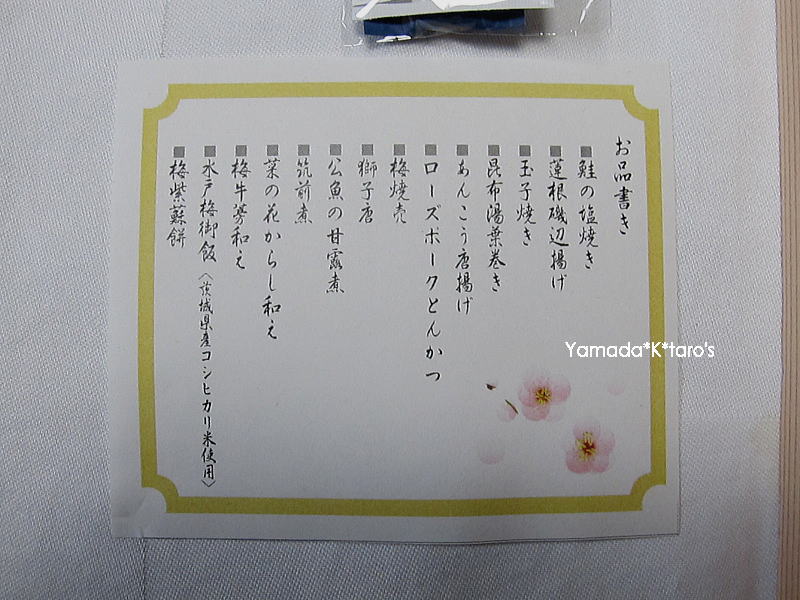 お品書き
■鮭の塩焼き
■蓮根磯辺揚げ
■玉子焼き
■昆布湯葉巻き
■あんこう唐揚げ
■ローズポークとんかつ
■梅焼売
■獅子唐
■公魚の甘露煮
■筑前煮
■菜の花からし和え
■梅牛蒡和え
■水戸梅御飯〈茨城県産コシヒカリ米使用〉
■梅紫蘇餅
Yamada*K*taro's